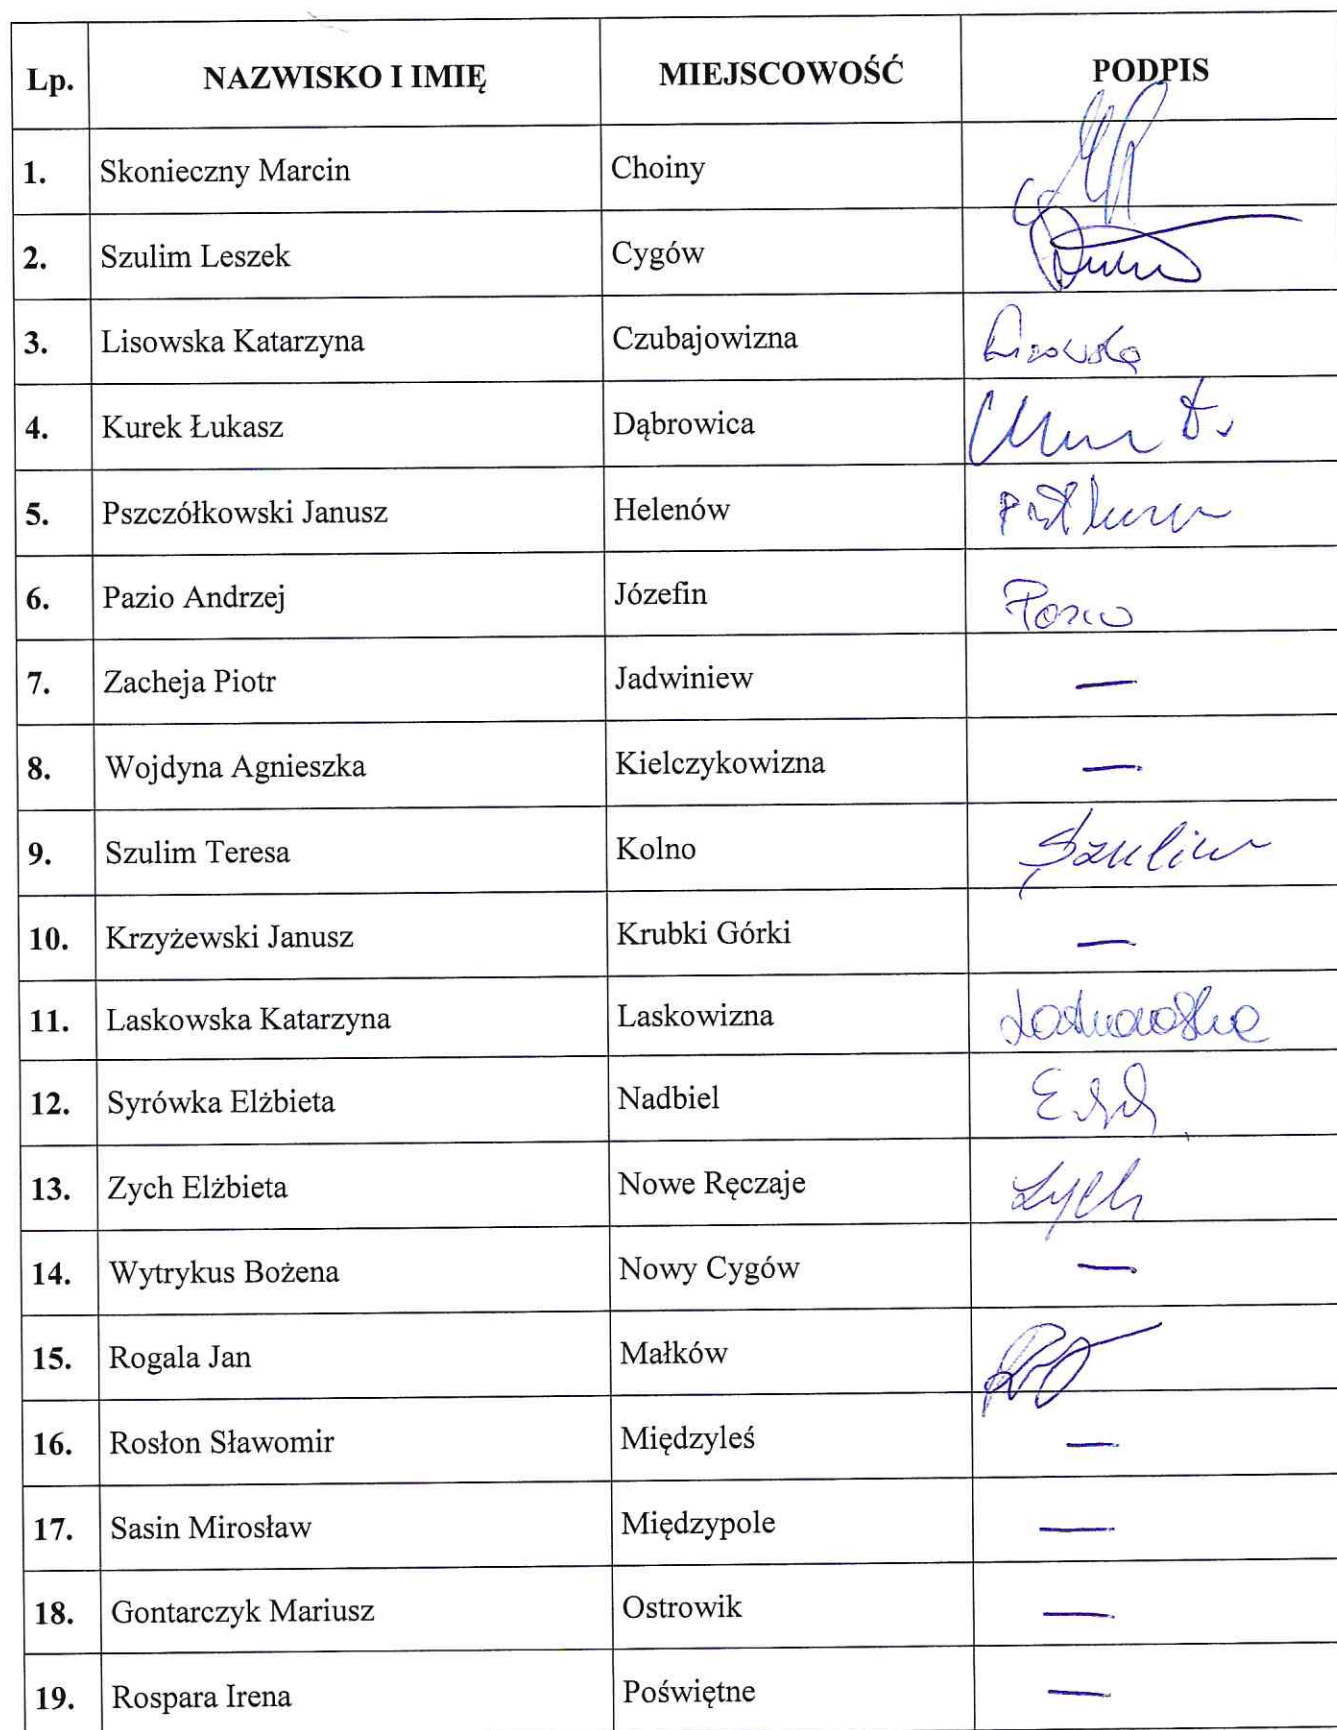 Lp. NAZWISKO I IMIĘ MIEJSCOWOŚĆ PODPIS
1. Skonieczny Marcin Choiny
2. Szulim Leszek Cygów
3. Lisowska Katarzyna Czubajowizna Lisowska
4. Kurek Łukasz Dąbrowica
5. Pszczółkowski Janusz Helenów
6. Pazio Andrzej Józefin Pazio
7. Zacheja Piotr Jadwiniew —
8. Wojdyna Agnieszka Kielczykowizna —
9. Szulim Teresa Kolno Szulim
10. Krzyżewski Janusz Krubki Górki —
11. Laskowska Katarzyna Laskowizna Laskowska
12. Syrówka Elżbieta Nadbiel
13. Zych Elżbieta Nowe Ręczaje Zych
14. Wytrykus Bożena Nowy Cygów —
15. Rogala Jan Małków
16. Rosłon Sławomir Międzyleś —
17. Sasin Mirosław Międzypole —
18. Gontarczyk Mariusz Ostrowik —
19. Rospara Irena Poświętne —